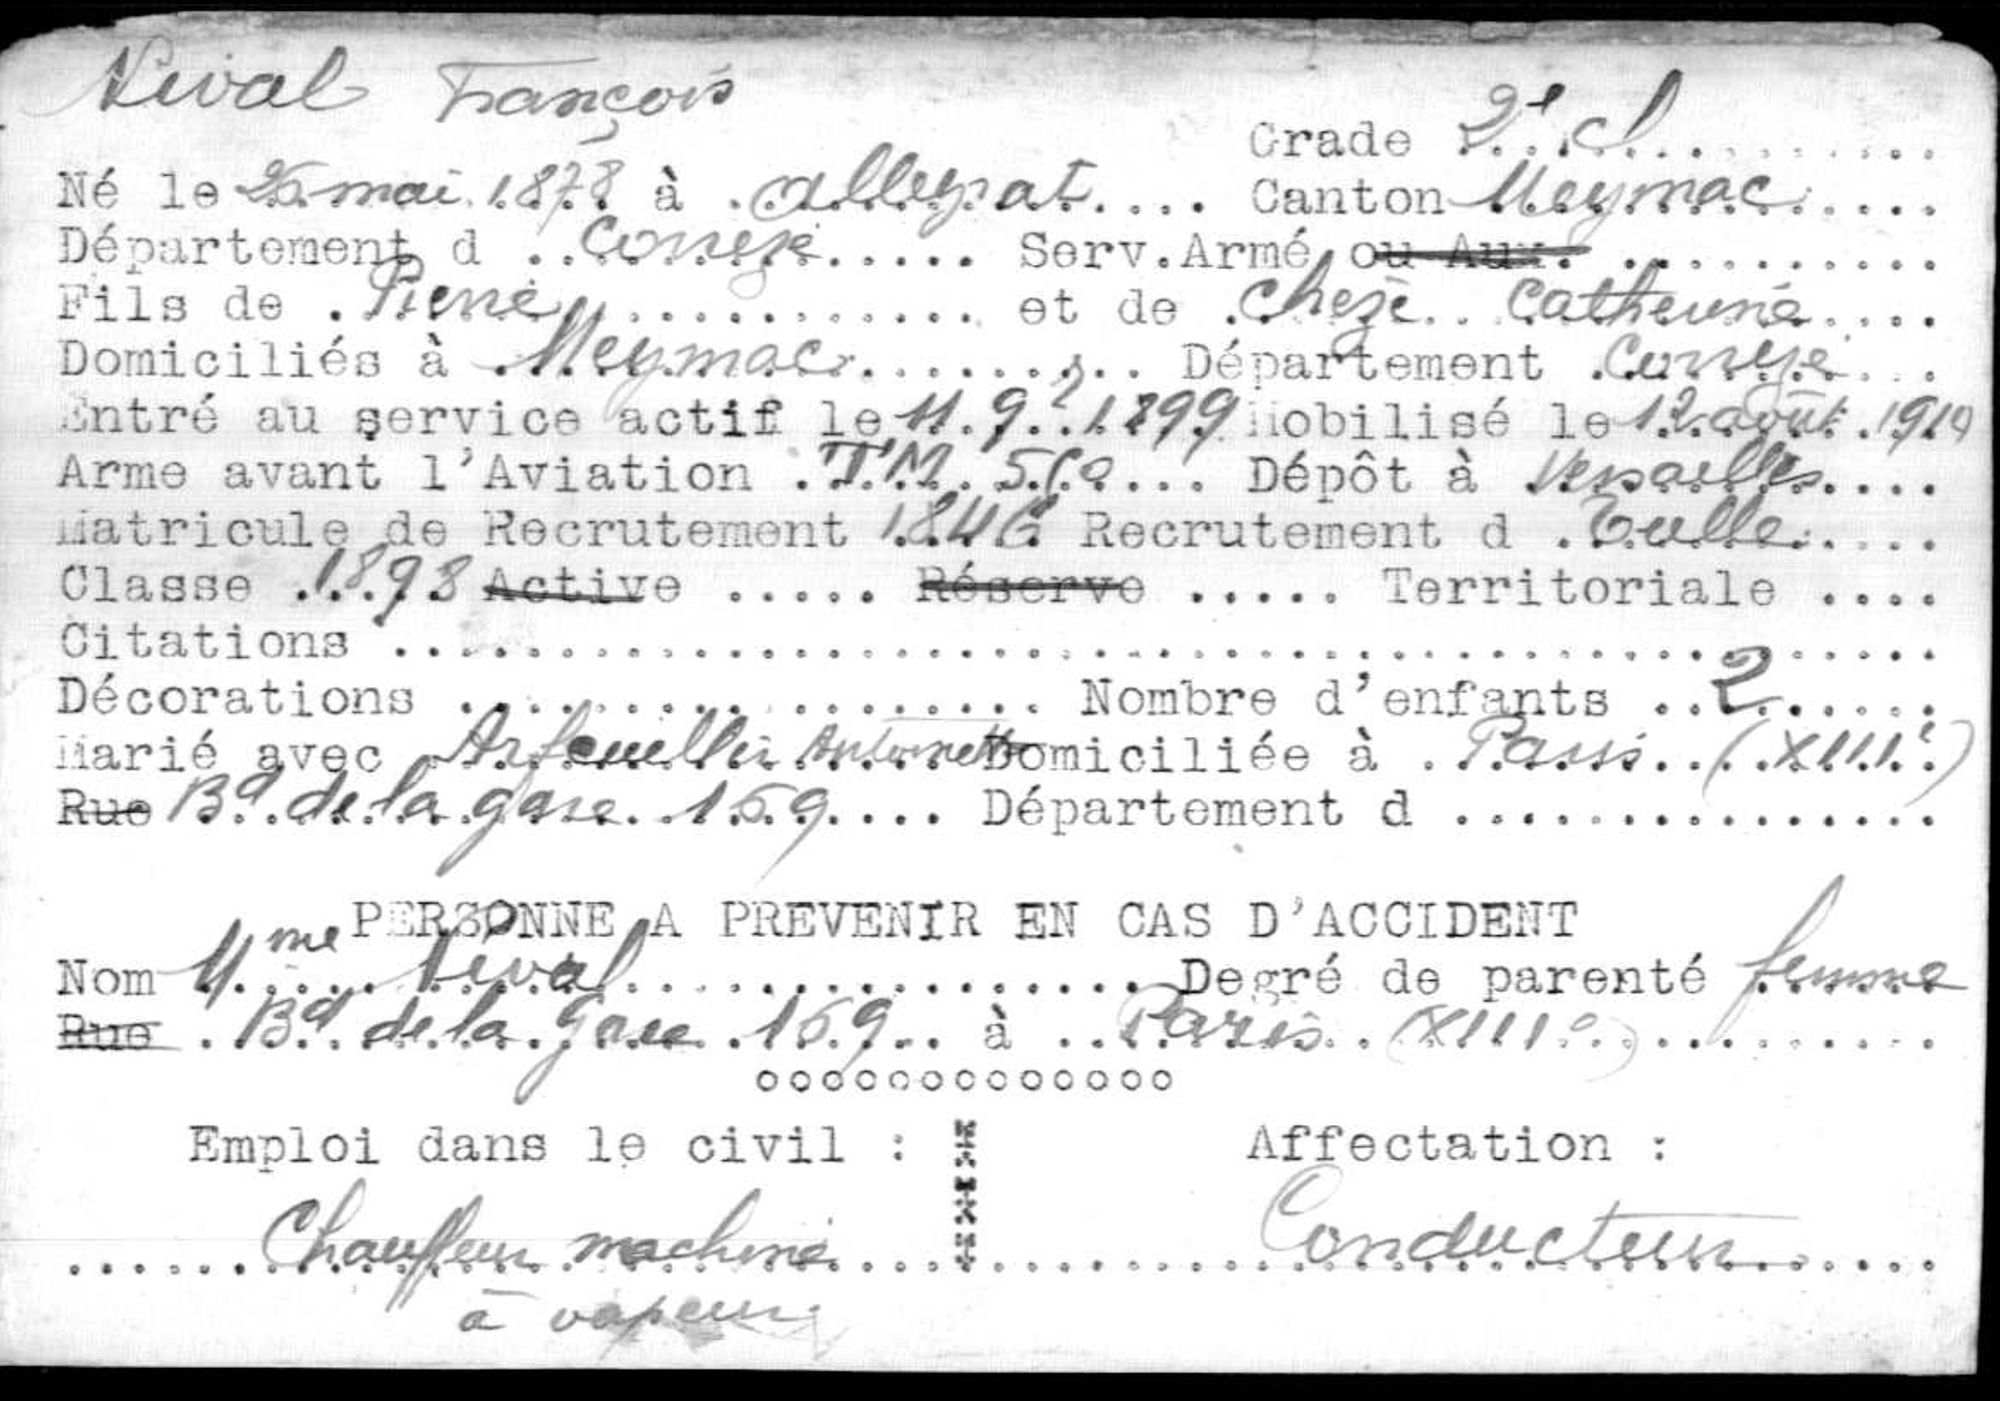 Nival François
Grade 2e cl
Né le 25 mai 1878 à Alleyrat Canton Meymac
Département d Corrèze Serv.Armé ou Aux.
Fils de Pierre et de Chèze Catherine
Domiciliés à Meymac Département Corrèze
Entré au service actif le 11.9.1899 Mobilisé le 12 août 1914
Arme avant l'Aviation Dépôt à Versailles
Matricule de Recrutement 1846 Recrutement d Tulle
Classe 1898 Active ..... Réserve ..... Territoriale ....
Citations
Décorations Nombre d'enfants 2
Marié avec Arfeuillère Antoinette Domiciliée à Paris (XIIIe)
Rue Bd de la gare 159 Département d
PERSONNE A PREVENIR EN CAS D'ACCIDENT
Nom Mme Nival Degré de parenté femme
Rue Bd de la Gare 159 à Paris (XIIIe)
ooooooooooooo
Emploi dans le civil : Affectation :
Chauffeur machine Conducteur
à vapeur